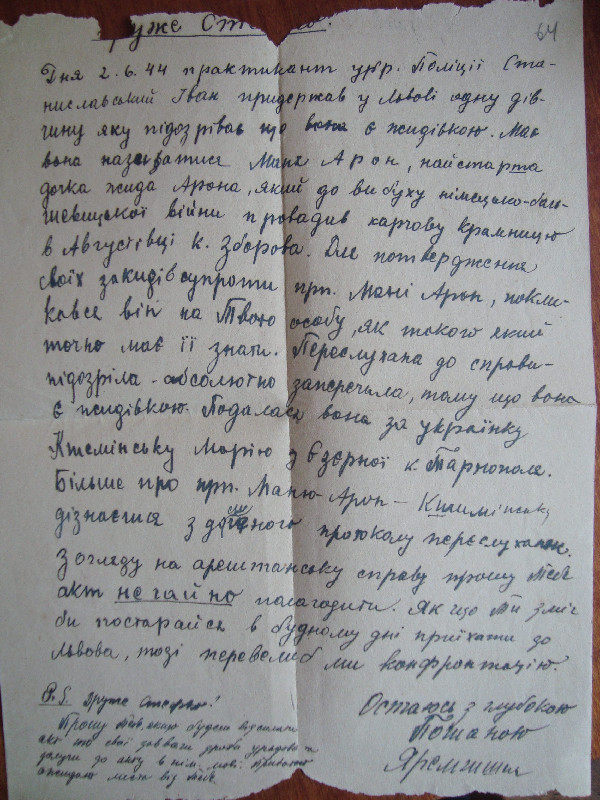 Друже Стефко!
64
Дня 2.6.44 практикант укр. Поліції Ста-
ниславський Іван придержав у Львові одну дів-
чину яку підозрівав що вона є жидівкою. Має
вона називатися Маня Арон, найстарша
дочка жида Арона, який до вибуху німецько-боль-
шевицької війни провадив харчову крамницю
в Августівці к. Зборова. Для потвердження
своїх закидів супроти гр. Мані Арон, покли-
кався він на Твою особу, як такого який
точно має її знати. Переслухана до справи-
підозріла - абсолютно заперечила, тому що вона
є жидівкою. Подалася вона за українку
Марію з Єзерної к. Тарнополя.
Більше про гр. Маню Арон -
дізнаєшся з протоколу переслухання.
З огляду на арештанську справу прошу Тебе
акт негайно полагодити. Як що Ти зміг
би постарайся в будному дні приїхати до
Львова, тоді перевели б ми конфронтацію.
Остаюсь з глубокою
Пошаною
P.S. Друже Стефко!
Прошу Тебе, якщо будеш відсилати
акт то свої
долучи до акту в нім. мові.
від Тебе